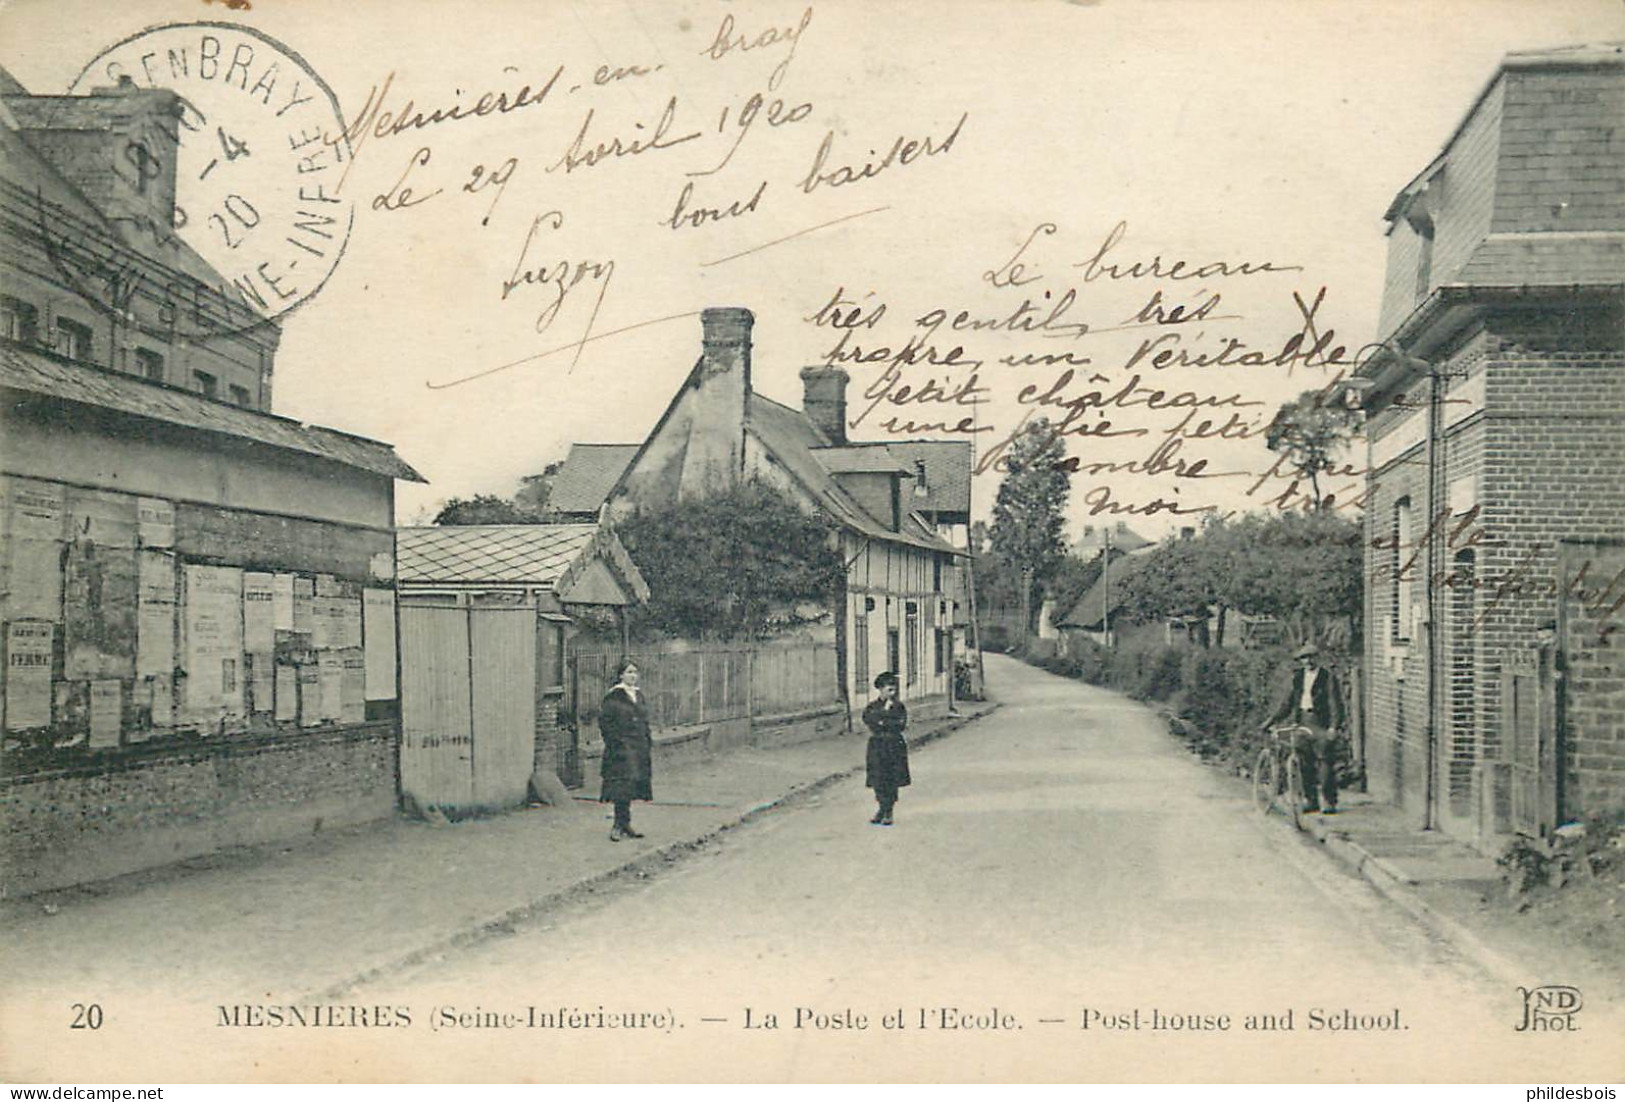 S EN BRAY
-4
20
SEINE-INFRE
Mesnières-en-bray
Le 29 Avril 1920
bons baisers
Suzon
Le bureau
trés gentil, trés
propre, un Veritable
petit château
une jolie petite
chambre pour
moi, trés
et confortable
FERME
20 MESNIERES (Seine-Inférieure). — La Poste et l'Ecole. — Post-house and School.
ND
Phot.
phildesbois
delcampe.net